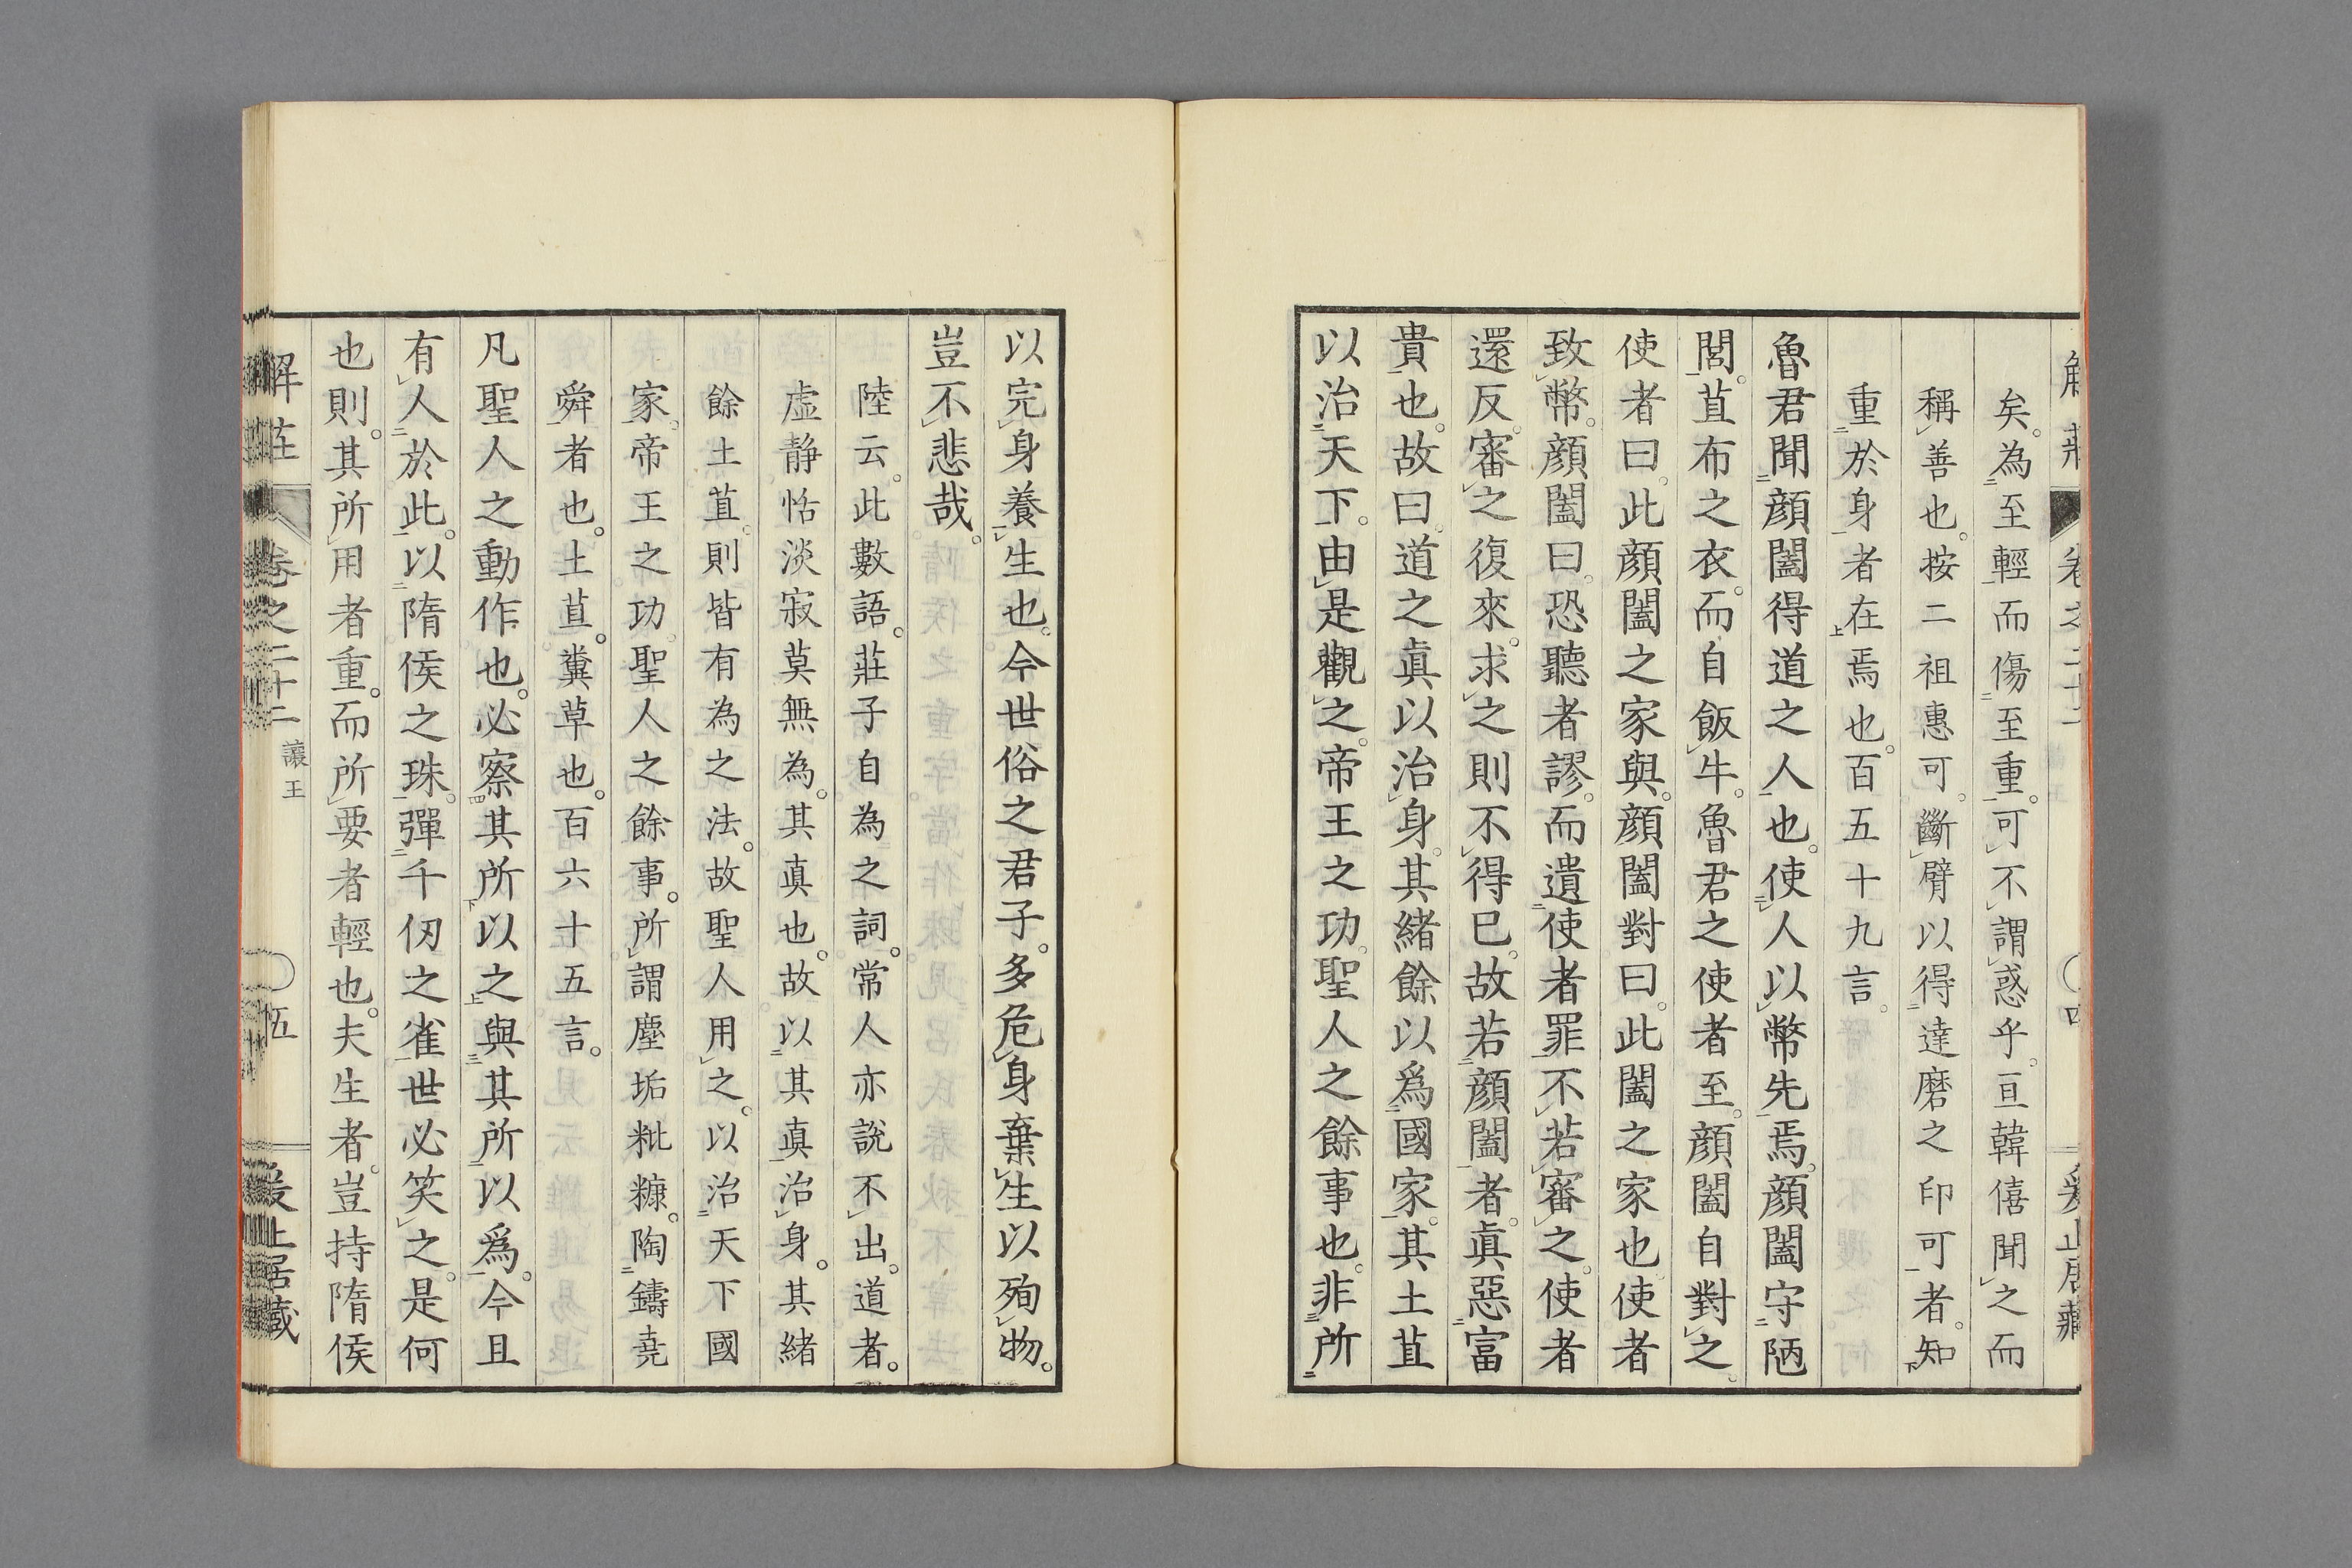 矣。為至輕而傷至重。可不謂惑乎。亘韓僖聞之而
稱善也。按二祖惠可。斷臂以得達磨之印可者。知
重於身者在焉也。百五十九言。
魯君聞顏闔得道之人也。使人以幣先焉。顏闔守陋
閭。苴布之衣。而自飯牛。魯君之使者至。顏闔自對之。
使者曰。此顏闔之家與。顏闔對曰。此闔之家也。使者
致幣。顏闔曰。恐聽者謬。而遺使者罪。不若審之。使者
還反。審之復來。求之則不得已。故若顏闔者。眞惡富
貴也。故曰。道之眞以治身。其緒餘以爲國家。其土苴
以治天下。由是觀之。帝王之功。聖人之餘事也。非所
以完身養生也。今世俗之君子。多危身棄生以殉物。
豈不悲哉。
陸云。此數語。莊子自為之詞。常人亦說不出。道者。
虛静恬淡寂莫無為。其真也。故以其眞治身。其緒
餘土苴。則皆有為之法。故聖人用之。以治天下國
家。帝王之功。聖人之餘事。所謂塵垢粃糠。陶鑄堯
舜者也。土苴。糞草也。百六十五言。
凡聖人之動作也。必察其所以之。與其所以爲。今且
有人於此。以隋侯之珠。彈千仞之雀。世必笑之。是何
也。則其所用者重。而所要者輕也。夫生者。豈持隋侯
解莊 卷之二十二 讓王 〇伍